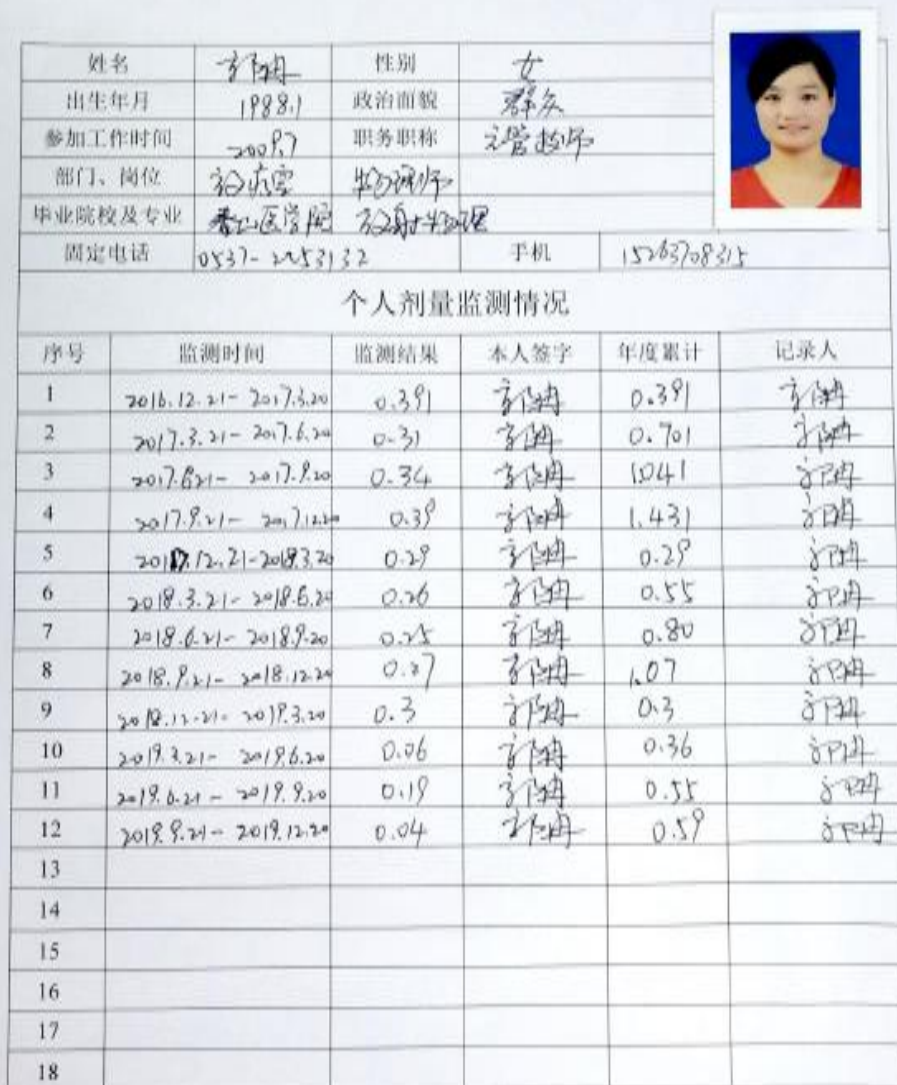 姓名 郭冉 性别 女
出生年月 1988.1 政治面貌 群众
参加工作时间 2009.7 职务职称 主管技师
部门、岗位 放疗室 物理师
毕业院校及专业 泰山医学院 放射物理
固定电话 0537-2253132 手机 15263708315
个人剂量监测情况
序号 监测时间 监测结果 本人签字 年度累计 记录人
1 2016.12.21-2017.3.20 0.391 0.391
2 2017.3.21-2017.6.20 0.31 0.701
3 2017.6.21-2017.9.20 0.34 1.041
4 2017.9.21-2017.12.20 0.39 1.431
5 2017.12.21-2018.3.20 0.29 0.29
6 2018.3.21-2018.6.20 0.26 0.55
7 2018.6.21-2018.9.20 0.25 0.80
8 2018.9.21-2018.12.20 0.27 1.07
9 2018.12.21-2019.3.20 0.3 0.3
10 2019.3.21-2019.6.20 0.06 0.36
11 2019.6.21-2019.9.20 0.19 0.55
12 2019.9.21-2019.12.20 0.04 0.59
13
14
15
16
17
18